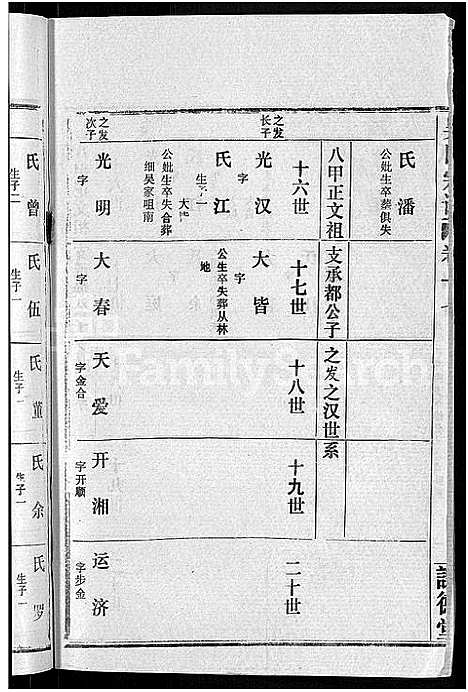 氏潘
公妣生卒葬俱失
八甲正文祖
支承都公子
之发之汉世系
十六世
十七世
十八世
十九世
二十世
之发
长子
光汉
字
氏江
生子一
大皆
公妣生卒失合葬
细吴家咀南
大皆
字
公生卒失葬从林
地
之发
次子
光明
字
大春
字
天爱
字金合
开湘
字开顺
运济
字步金
氏曾
生子一
氏伍
生子一
氏董
生子一
氏余
生子一
氏罗
生子一